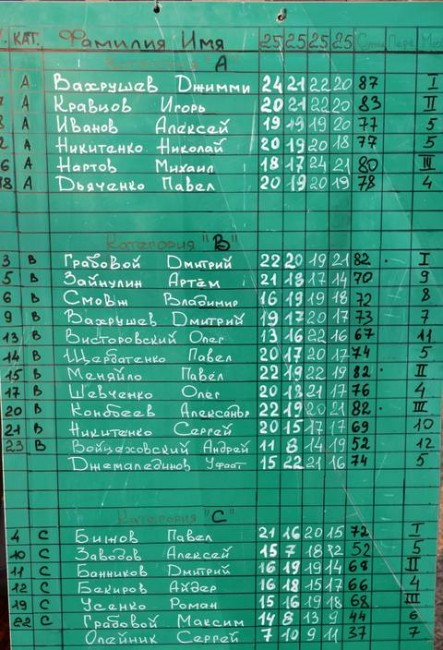 КАТ. Фамилия Имя 25 25 25 25 Сумма Пере. Место
Категория "А"
А Вахрушев Джимми 24 21 22 20 87 I
А Кравцов Игорь 20 21 22 20 83 II
А Иванов Алексей 19 19 19 20 77 5
А Никитенко Николай 20 19 20 18 77 5
А Нартов Михаил 18 17 24 21 80 III
А Дьяченко Павел 20 19 20 19 78 4
Категория "В"
3 В Грабовой Дмитрий 22 20 19 21 82 I
5 В Зайнулин Артём 21 18 17 14 70 9
6 В Смовж Владимир 16 19 19 18 72 8
9 В Вахрушев Дмитрий 19 17 20 17 73 7
13 В Висторовский Олег 13 16 22 16 67 11
14 В Щербатенко Павел 20 17 20 17 74 5
15 В Меняйло Павел 22 19 22 19 82 II
17 В Шевченко Олег 20 18 21 17 76 4
20 В Конбеев Александр 22 19 20 21 82 III
21 В Никитенко Сергей 20 15 17 17 69 10
23 В Войцеховский Андрей 11 8 14 19 52 12
Джемалединов 15 22 21 16 74 5
Категория "С"
4 С Бижов Павел 21 16 20 15 72 I
10 С Заводов Алексей 15 7 18 12 52 5
11 С Банников Дмитрий 16 19 19 14 68 II
12 С Бекиров Айдер 16 18 15 17 66 4
19 С Усенко Роман 15 16 19 18 68 III
22 С Грабовой Максим 14 8 13 9 44 6
Олейник Сергей 7 10 9 11 37 7